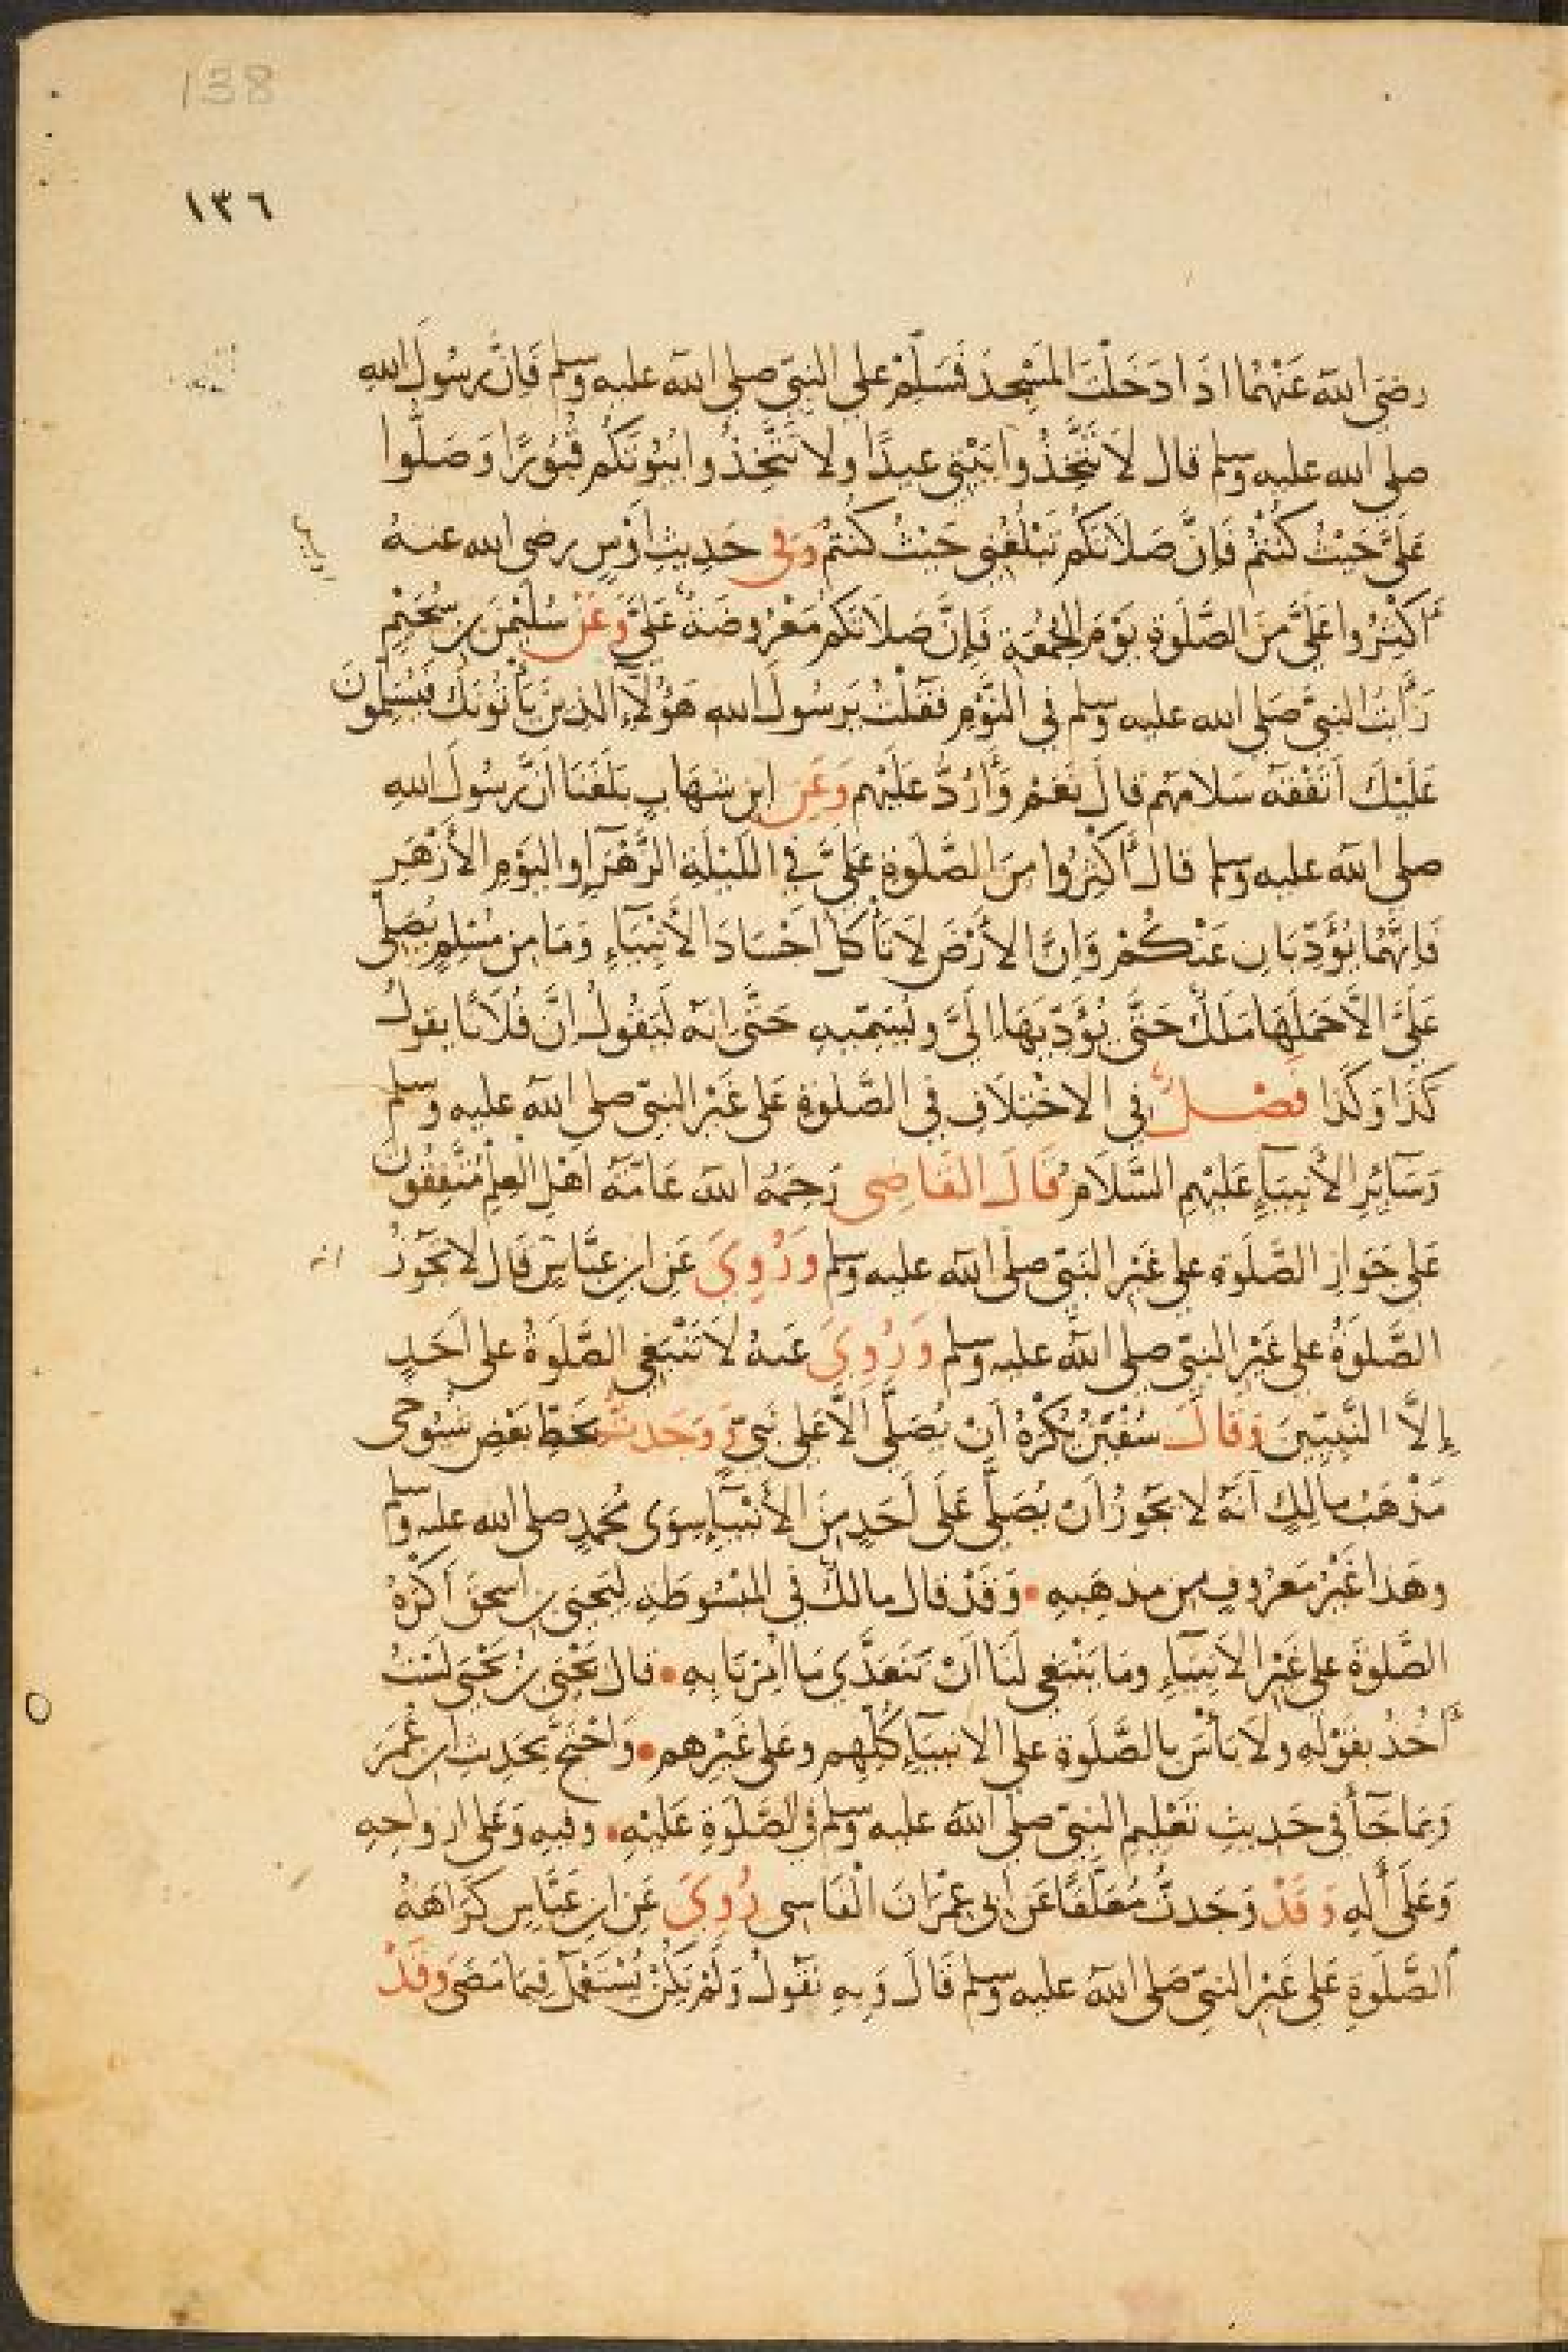 138
١٣٦
رضى الله عَنْهُمَا اذَا دَخَلْتَ المَسْجِدَ فَسَلِّمْ على النبىّ صلى الله عليه وسلم فَاِنَّ رسُولَ الله
صلى الله عليه وسلم قال لَا تَتَّخِذُوا بَيْتى عِيدًا ولا تَتَّخِذُوا بُيُوتَكُم قُبُورًا وَصَلُّوا
عَلَىَّ حَيْثُ كُنْتُمْ فَاِنَّ صَلَاتَكُم تَبْلُغُنِى حَيْثُ كُنتُمْ وَفى حَدِيثِ اَوْسٍ رضى الله عنهُ
أَكْثِرُوا عَلَىَّ مِنَ الصَّلَوةِ يَوْمَ الجُمُعَةِ فَإِنَّ صَلَاتَكُم مَعْرُوضَةٌ عَلَىَّ وَعَنْ سُلَيْمٰنَ بنِ سُحَيْمٍ
رَأيتُ النبىَّ صَلى الله عليه وسلم في النَّوْمِ فَقُلْتُ يَرسُولَ الله هَؤُلَآءِ الذينَ يَأْتُونَكَ فيُسَلِّمُونَ
عَلَيْكَ اَتَفْقَهُ سَلَامَهُم قالَ نَعَمْ وَأَرُدُّ عَلَيْهِم وَعَنِ ابنِ شهَابٍ بَلَغَنَا اَنَّ رسُولَ الله
صلى الله عليه وسلم قالَ أَكْثِرُوا مِنَ الصَّلَوةِ عَلَىَّ في اللَّيْلَةِ الزَّهْرَآءِ واليَوْمِ الأَزْهَرِ
فَاِنَّهُمَا يُؤَدِّيَانِ عَنْكُمْ وَاِنَّ الاَرْضَ لَا تَأْكُلُ اَجْسَادَ الأَنْبِيَآءِ وَمَا مِن مُسْلِمٍ يُصَلِّى
عَلَىَّ الاَّ حَمَلَهَا مَلَكٌ حَتَّى يُؤَدِّيَهَا اِلَىَّ ويُسَمِّيهِ حَتَّى اِنَّهُ لَيَقُولُ اِنَّ فُلَانًا يقولُ
كَذَا وَكَذَا فَصْلٌ في الاخْتِلَافِ في الصَّلَوةِ عَلى غَيْرِ النبىّ صلى الله عليه وسلم
وَسَآئِرِ الأَنْبِيَآءِ عَلَيْهِم السَّلَامُ قَالَ القَاضِى رَحِمَهُ الله عَامَّةُ اَهْلِ العِلْمِ مُتَّفِقُونَ
عَلى جَوَازِ الصَّلَوةِ على غَيْرِ النَّبىّ صلى الله عليه وسلم وَرُوِيَ عَنِ ابنِ عَبَّاسٍ قَال لا تَجُوزُ
الصَّلَوةُ على غَيْرِ النبىّ صلى الله عليه وسلم وَرُوِيَ عَنهُ لَا تَنْبَغِى الصَّلَوةُ على اَحَدٍ
إِلاَّ النَّبِيّينَ وَقَالَ سُفْيٰنُ يُكْرَهُ اَنْ يُصَلَّى اِلَّا عَلى نَبىّ وَوَجَدتُّ بخَطّ بَعْضِ شُيُوخى
مَذْهَبُ مالِكٍ اَنَّهُ لا يَجُوزُ اَنْ يُصَلَّى عَلَى اَحَدٍ مِنَ الأَنْبِيَآءِ سِوَى مُحَمَّدٍ صلى الله عليه وسلم
وهَذا غَيْرُ مَعْرُوفٍ مِن مذهَبِهِ • وَقَدْ قال مالكٌ في المَبْسُوطَةِ لِيَحْيَى بنِ اسحٰقَ اَكْرَهُ
الصَّلَوةَ على غَيْرِ الاَنبِيَآءِ وما يَنْبَغِى لَنَا اَنْ نَتَعَدَّى مَا اُمِرْنَا بِهِ • قال يَحْيَى بنُ يَحْيَى لَسْتُ
أَخُذُ بقَوْلِهِ ولَا بَأْسَ بالصَّلَوةِ على الانبيَآءِ كُلِّهِم وعَلى غَيْرِهِم • وَاحْتَجَّ بحَدِيثِ ابنِ عُمَرَ
وَبمَا جَآءَ في حَدِيثِ تَعْلِيمِ النبىّ صلى الله عليه وسلم في الصَّلَوةِ عَلَيْهِ • وفيه وَعَلى ازواجِهِ
وَعَلَى أٰلِهِ وَقَدْ وَجَدتُّ مُعَلَّقًا عَن اَبى عِمْرَانَ الْفَاسِى رُوِىَ عَنِ ابنِ عَبَّاسٍ كَرَاهَةُ
الصَّلَوةِ عَلى غَيْرِ النبىّ صَلى الله عليه وسلم قَالَ وَبِهِ نَقُولُ وَلَمْ يَكُنْ يُسْتَعْمَلُ فِيمَا مَضَى وَقَدْ